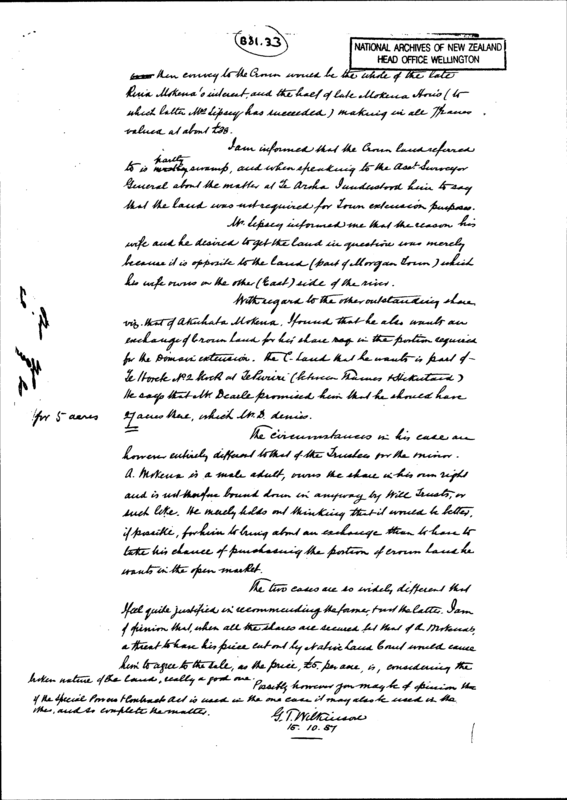 B81.33
NATIONAL ARCHIVES OF NEW ZEALAND
HEAD OFFICE WELLINGTON
then convey to the Crown would be the whole of the late
Rina Mokena's interest, and the half of late Mokena Hou's (to
which latter Mrs Lipsey has succeeded) making in all acres
valued at about
I am informed that the Crown land referred
to is partly swamp, and when speaking to the Asst Surveyor
General about the matter at Te Aroha I understood him to say
that the land was not required for Town extension purposes.
Mr. Lipsey informed me that the reason his
wife and he desired to get the land in question was merely
because it is opposite to the land (part of Morgan Town) which
his wife owns on the other (East) side of the river.
With regard to the other outstanding share
viz. that of Akuhata Mokena. I found that he also wants an
exchange of Crown Land for his share in the portion required
for the Domain extension. The C. Land that he wants is part of
No 2 Block at (between)
He says that Mr Dearle promised him that he should have
for 5 acres
27 acres there, which Mr. D. denies.
The circumstances in his case are
however entirely different to that of the Trustees or the minor.
A. Mokena is a male adult, owns the share in his own right
and is not therefore bound down in anyway by Will Trusts, or
such like. He merely holds out thinking that it would be better,
if possible, for him to bring about an exchange than to have to
take his chance of purchasing the portion of crown land he
wants in the open market.
The two cases are so widely different that
I feel quite justified in recommending the former, & not the latter. I am
of opinion that, when all the shares are secured but that of A. Mokena's,
a threat to have his piece cut out by Native Land Court would cause
him to agree to the sale, as the price, £5 per acre, is, considering the
broken nature of the land, really a good one.
Possibly however you may be of opinion that
if the Special Powers & Contracts Act is used in the one case it may also be used in the
other, and so complete the matter.
G. T. Wilkinson
15. 10. 87